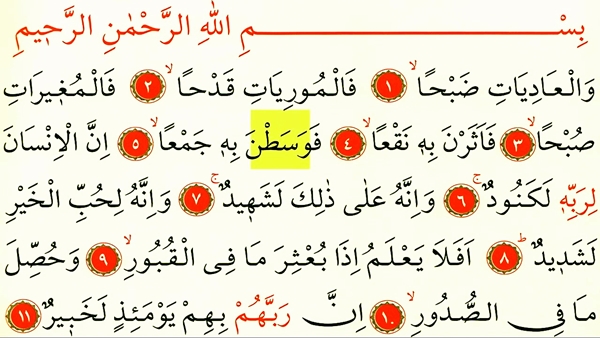 بِسْمِ اللهِ الرَّحْمٰنِ الرَّحٖيمِ
وَالْعَادِيَاتِ ضَبْحًاۙ ﴿١﴾ فَالْمُورِيَاتِ قَدْحًاۙ ﴿٢﴾ فَالْمُغٖيرَاتِ
صُبْحًاۙ ﴿٣﴾ فَاَثَرْنَ بِهٖ نَقْعًاۙ ﴿٤﴾ فَوَسَطْنَ بِهٖ جَمْعًاۙ ﴿٥﴾ اِنَّ الْاِنْسَانَ
لِرَبِّهٖ لَكَنُودٌۚ ﴿٦﴾ وَاِنَّهُ عَلٰى ذٰلِكَ لَشَهٖيدٌۚ ﴿٧﴾ وَاِنَّهُ لِحُبِّ الْخَيْرِ
لَشَدٖيدٌؕ ﴿٨﴾ اَفَلَا يَعْلَمُ اِذَا بُعْثِرَ مَا فِى الْقُبُورِۙ ﴿٩﴾ وَحُصِّلَ
مَا فِى الصُّدُورِۙ ﴿١٠﴾ اِنَّ رَبَّهُمْ بِهِمْ يَوْمَئِذٍ لَخَبٖيرٌ ﴿١١﴾